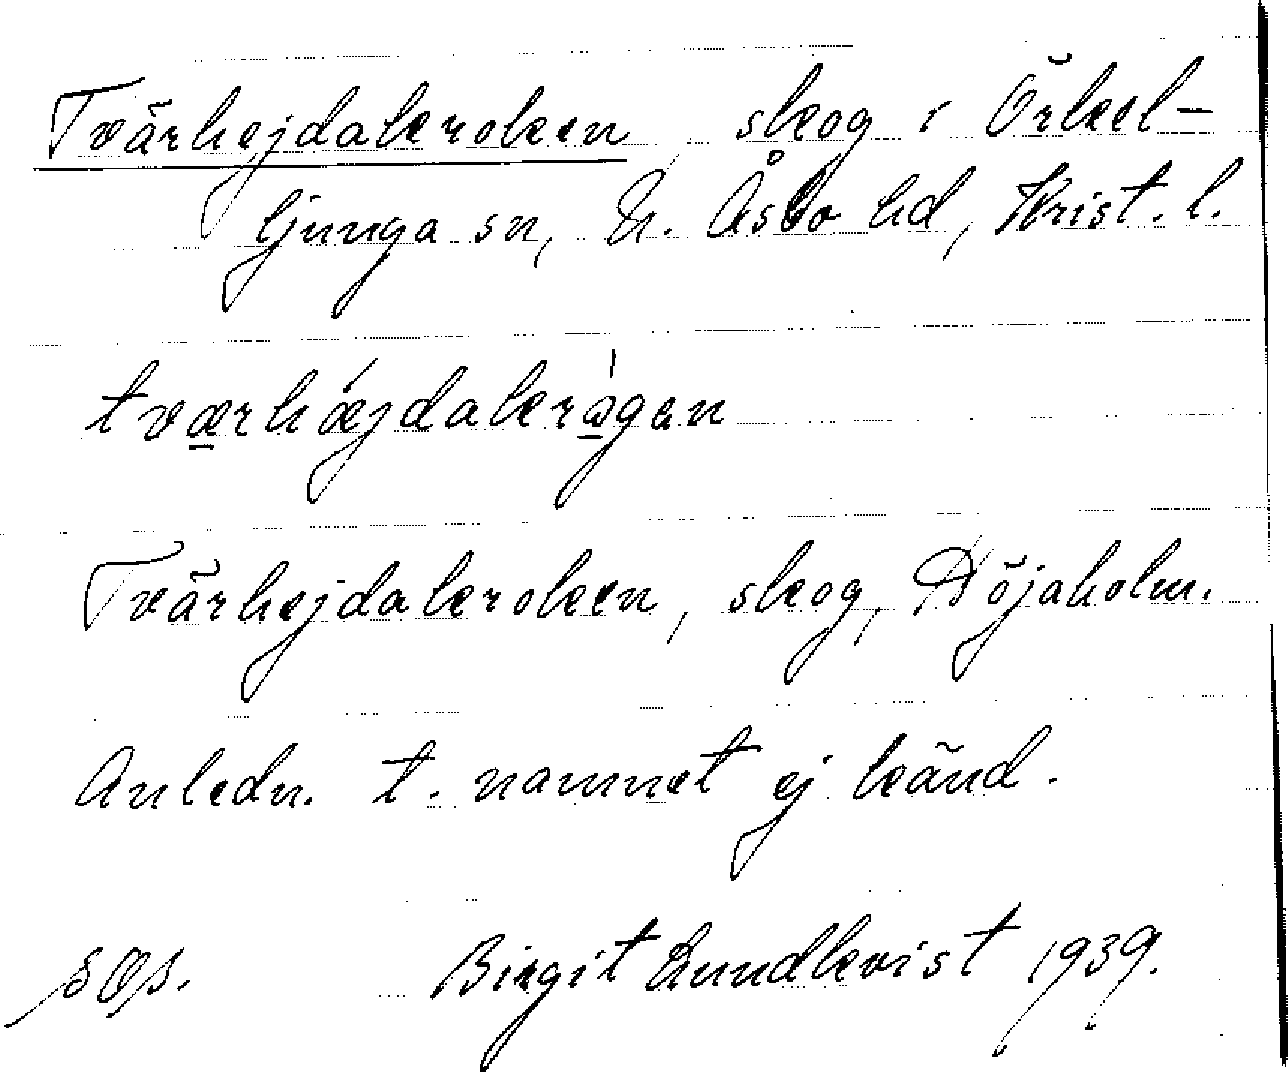 Tvärhejdakroken skog i Örkel-
ljunga sn, N. Åsbo hd, Krist. l.
tværhæjdakrågan
Tvärhejdakroken, skog, Höjaholm.
Anledn. t. namnet ej känd.
Birgit Lundkvist 1939.